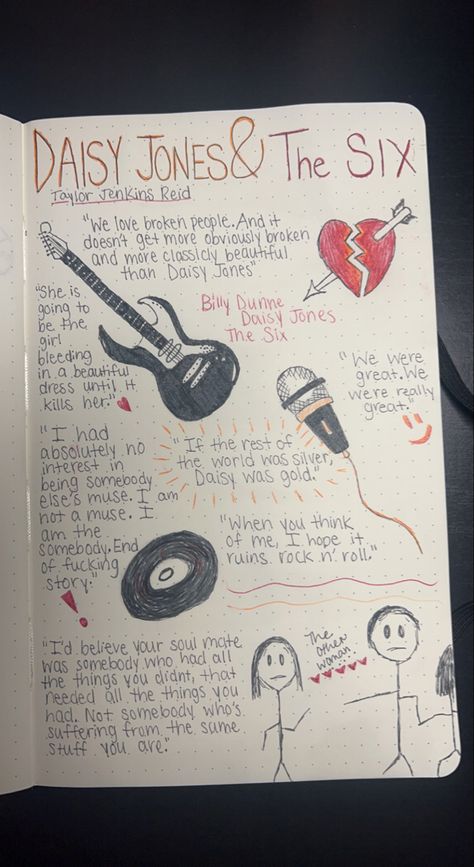 DAISY JONES & The SIX
Taylor Jenkins Reid
"We love broken people. And it
doesn't get more obviously broken
and more classicly beautiful
than Daisy Jones"
"She is
going to
be the
girl
bleeding
in a beautiful
dress until it
kills her."
Billy Dunne
Daisy Jones
The Six
"We were
great. We
were really
great."
"I had
absolutely no
interest in
being somebody
else's muse. I am
not a muse. I
am the
somebody. End
of fucking
story."
"If the rest of
the world was silver,
Daisy was gold."
"When you think
of me, I hope it
ruins rock n' roll."
"I'd believe your soul mate
was somebody who had all
the things you didnt, that
needed all the things you
had. Not somebody who's
suffering from the same
stuff you are."
The
other
woman...